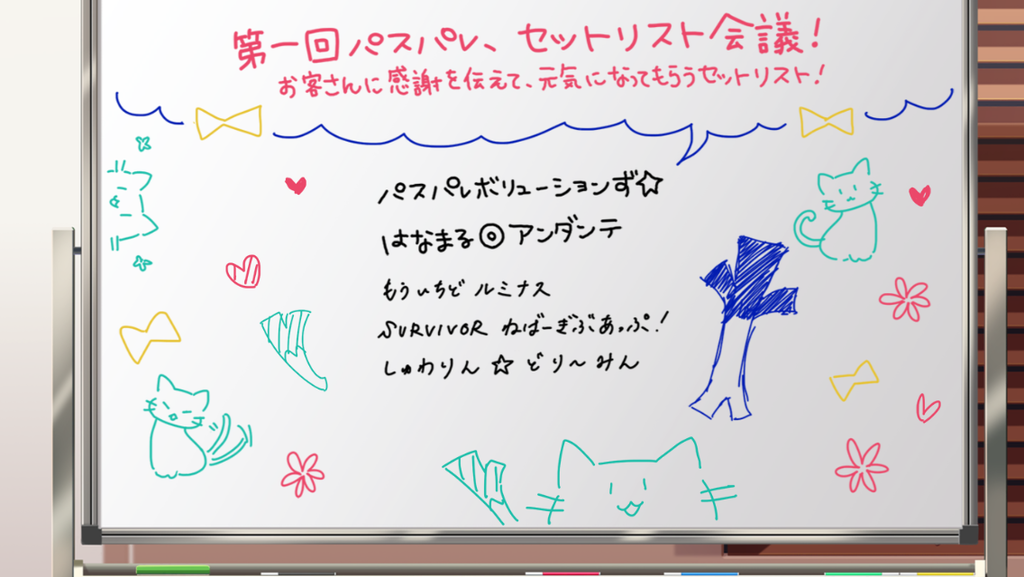 第一回パスパレ、セットリスト会議!
お客さんに感謝を伝えて、元気になってもらうセットリスト!
パスパレボリューションず☆
はなまる◎アンダンテ
もういちど ルミナス
SURVIVOR ねばーぎぶあっぷ!
しゅわりん☆どり〜みん